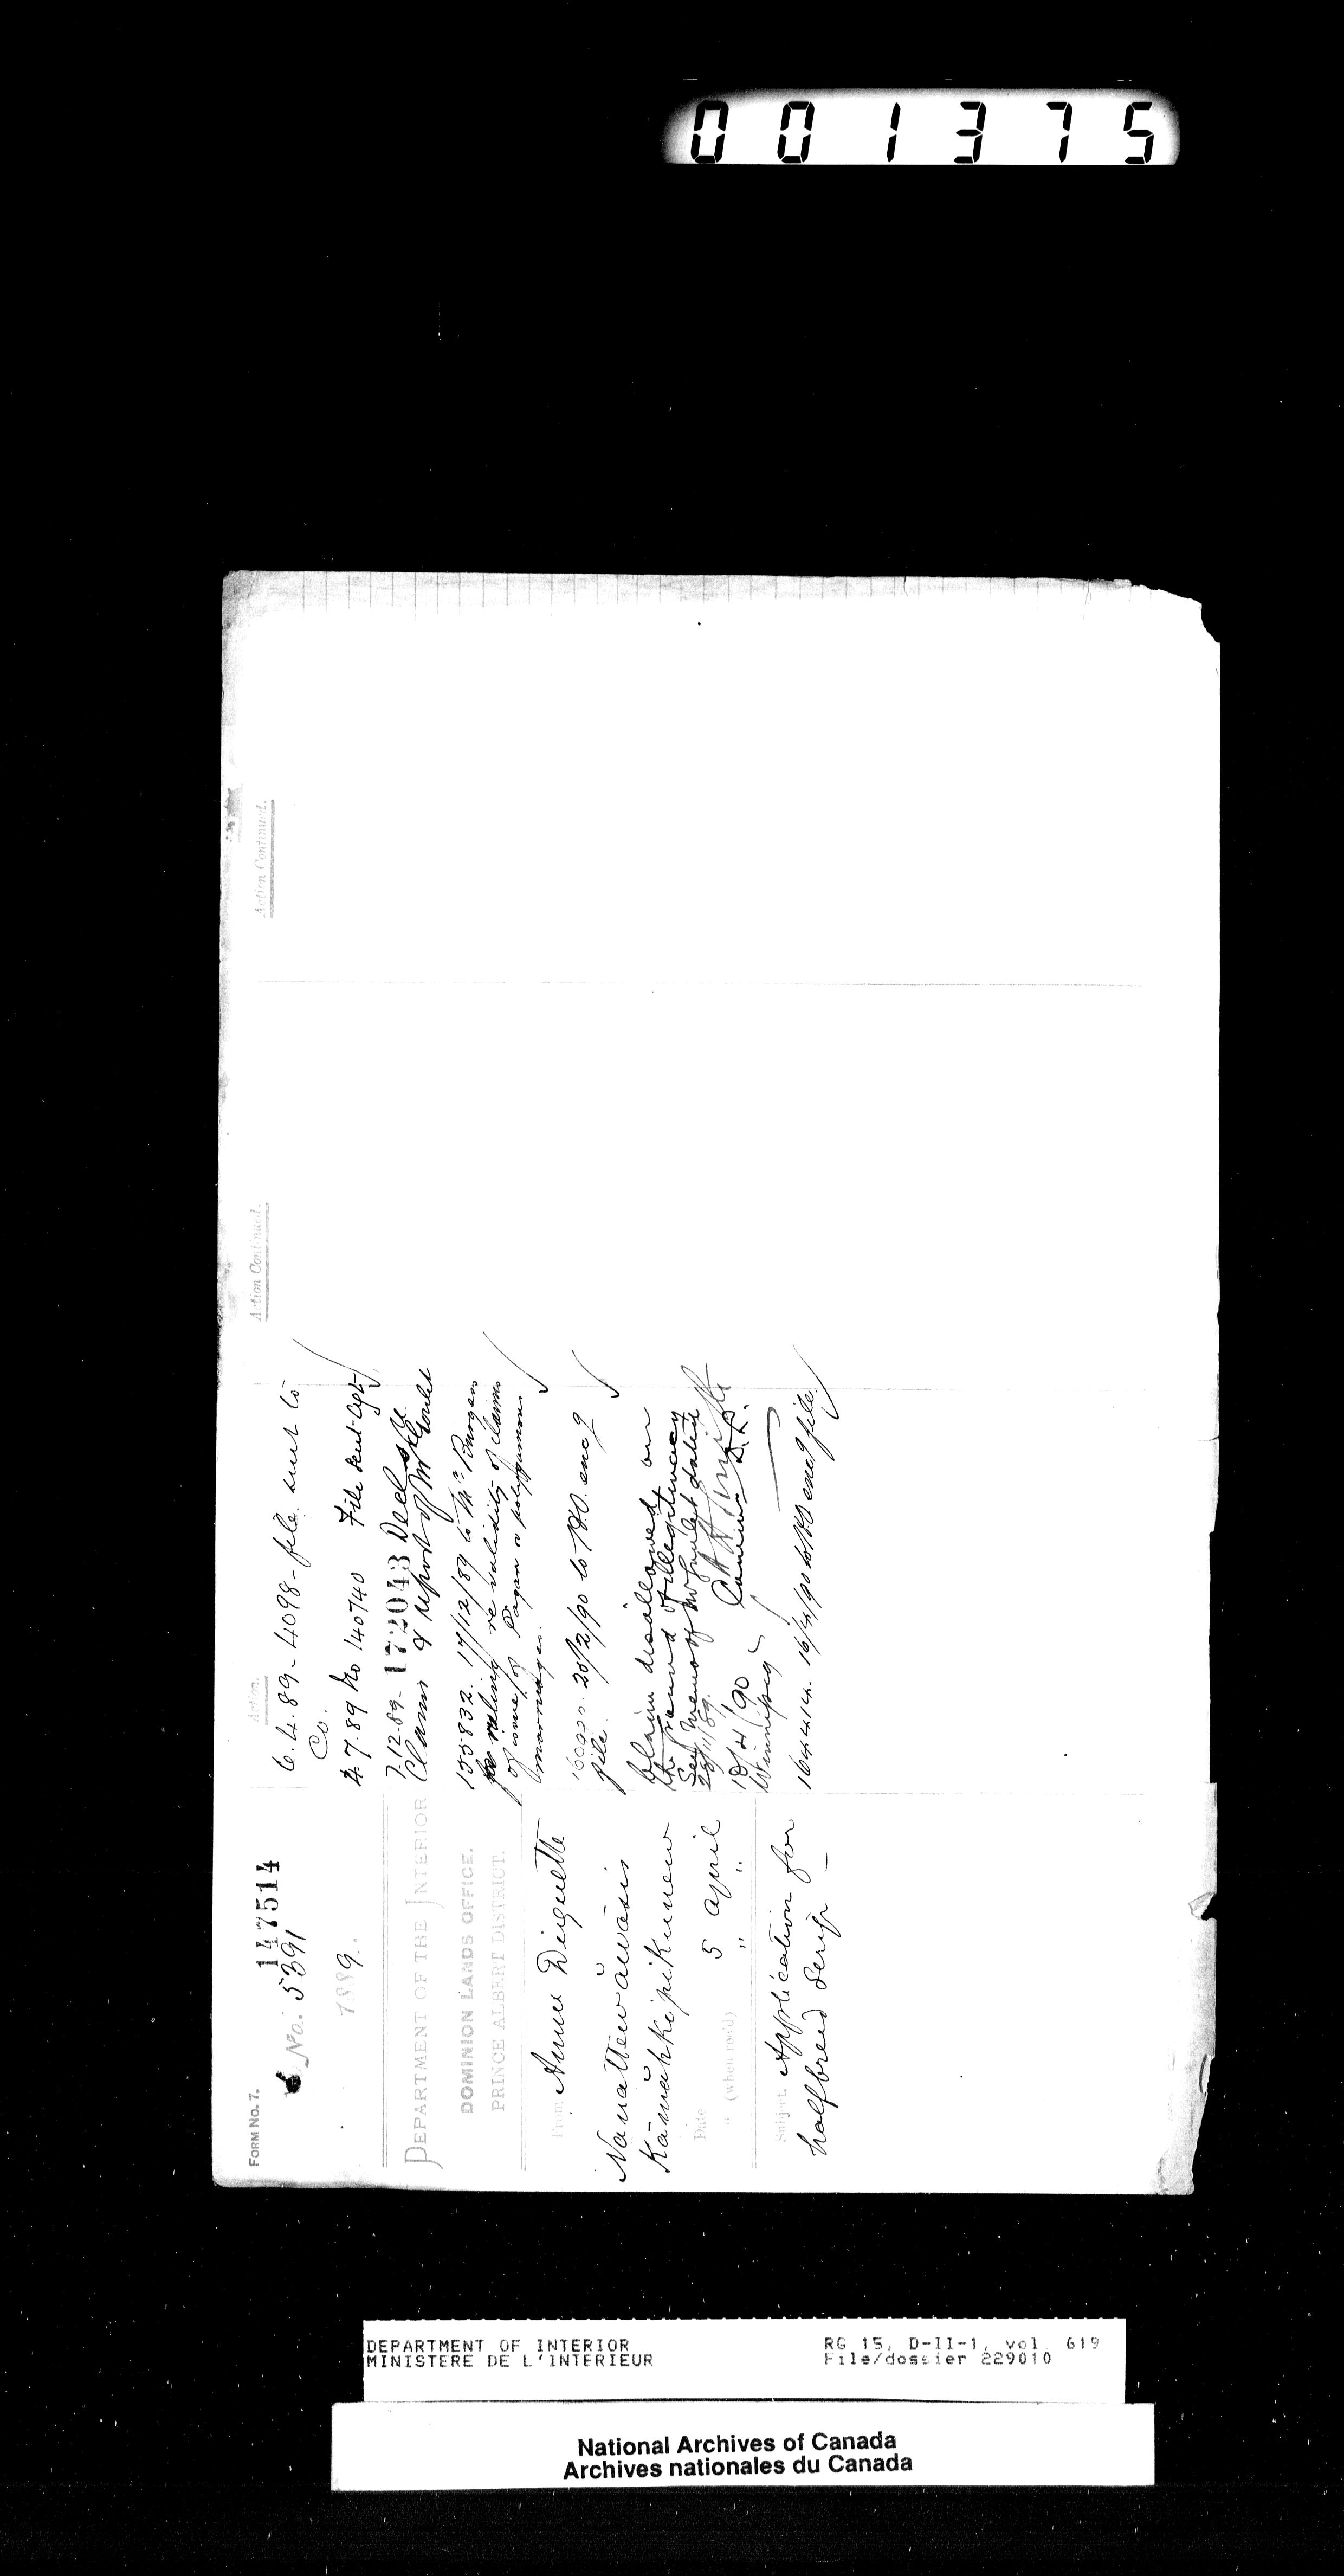 001375
FORM No. 7.
147514
No. 5391
1889.
DEPARTMENT OF THE INTERIOR
DOMINION LANDS OFFICE.
PRINCE ALBERT DISTRICT.
From Anne Duquette
Nanattewâwâsis
Kānahképikunew
Date 5 april
" (when rec'd) " "
Subject. Application for
halfbreed Scrip
Action.
6.4.89 - 4098 - file sent to
Co.
4.7.89 No 140740 File sent
7.12.89 - 172043 Decl
Claim & report of Mr Goulet
155832. 17/12/89 to Mr Burgess
for ruling re validity of claims
of issue of Pagan or polygamous
marriages.
20/2/90 to encg
file.
Claim disallowed on
the ground of illegitimacy
See memo of Mr Goulet dated
25/11/89.
18/4/90
Winnipeg
164414. 16/4/90 to encg file.
Action Continued.
Action Continued.
DEPARTMENT OF INTERIOR
MINISTERE DE L'INTERIEUR
RG 15, D-II-1, vol. 619
File/dossier 229010
National Archives of Canada
Archives nationales du Canada